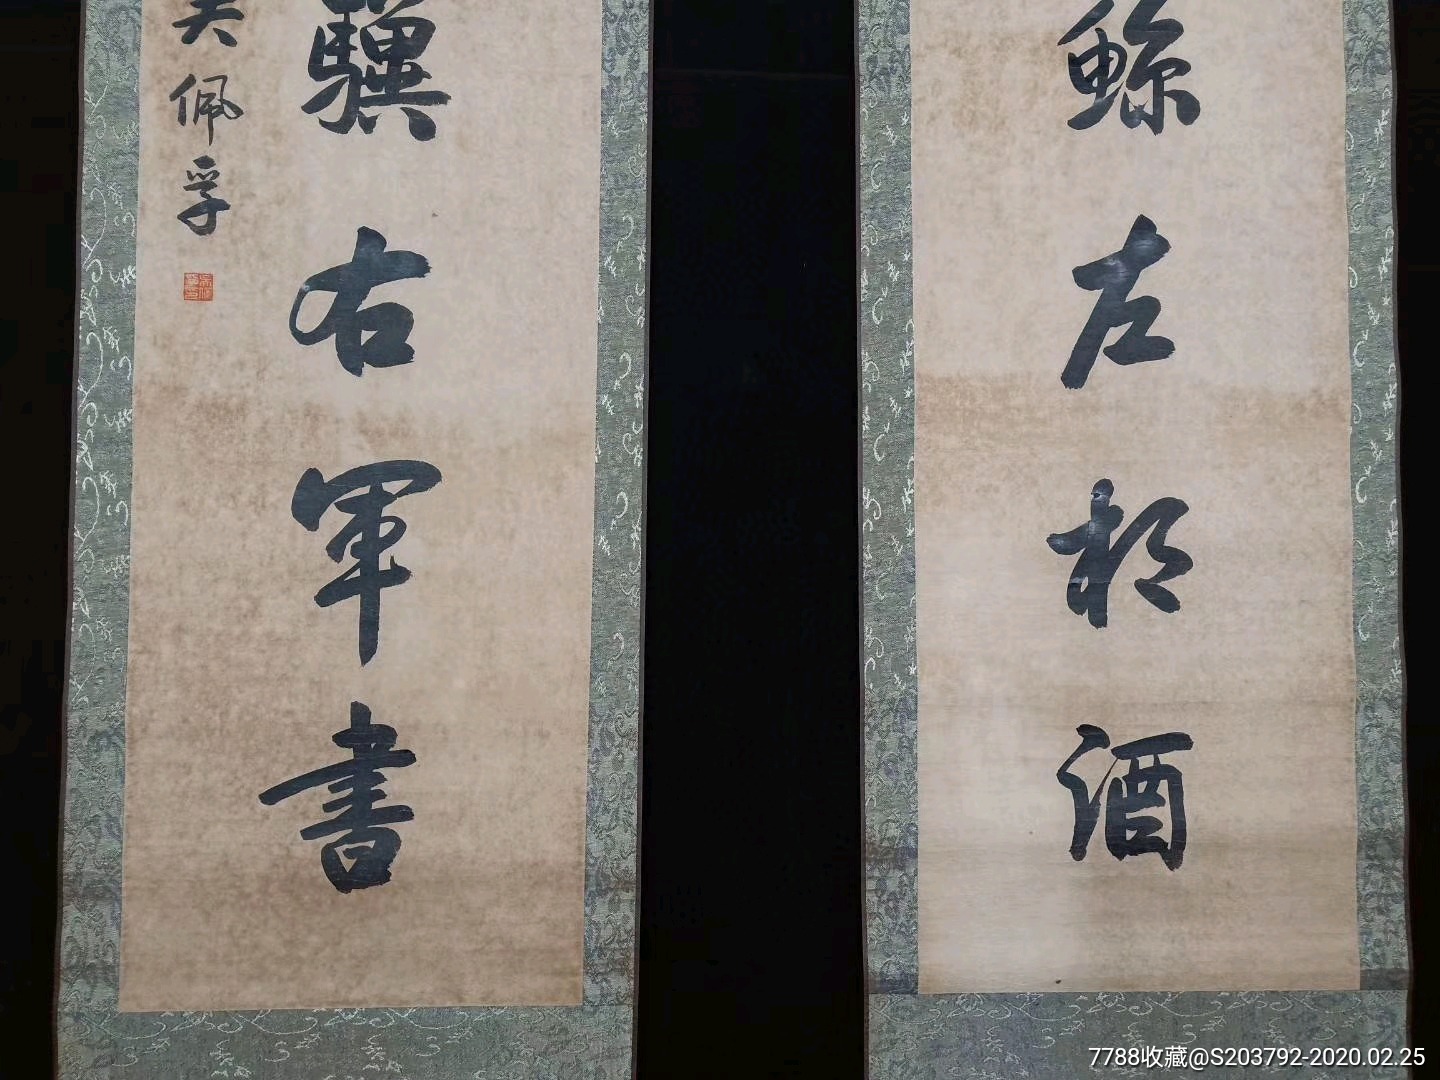 鲸左相酒
骥右军书
吴佩孚
7788收藏@S203792-2020.02.25